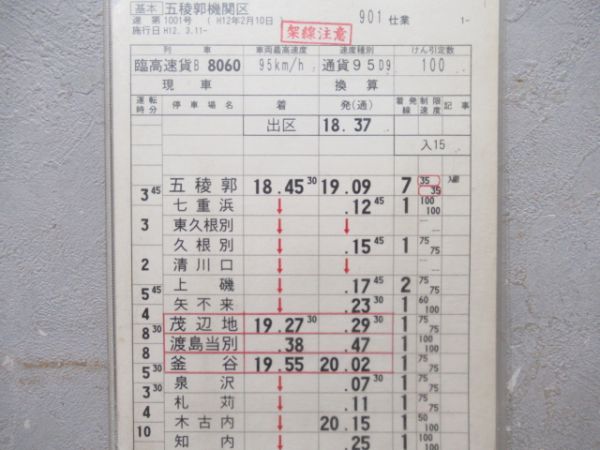 基本 五稜郭機関区
達 第 1001号 ( H12年2月10日
施行日 H12. 3.11-
901 仕業 1-
架線注意
列車 車両最高速度 速度種別 けん引定数
臨高速貨B 8060 95km/h 通貨95D9 100
現車 換算
運転時分 停車場名 着 発(通) 着発線 制限速度 記事
出区 18.37
入15
五稜郭 18.45 30 19.09 7 35 35
3 45
七重浜 ↓ .12 45 1 100 100
3
東久根別 ↓ ↓
久根別 ↓ .15 45 1 75 75
2
清川口 ↓ ↓
上磯 ↓ .17 45 2 75 75
5 45
矢不来 ↓ .23 30 1 60 100
4
茂辺地 19.27 30 .29 30 1 75 75
8 30
渡島当別 .38 .47 1 100 100
8
釜谷 19.55 20.02 1 75 75
5 30
泉沢 ↓ .07 30 1 75 75
3 30
札苅 ↓ .11 1 75 75
4
木古内 ↓ 20.15 1 50 100
10
知内 ↓ .25 1 100 100